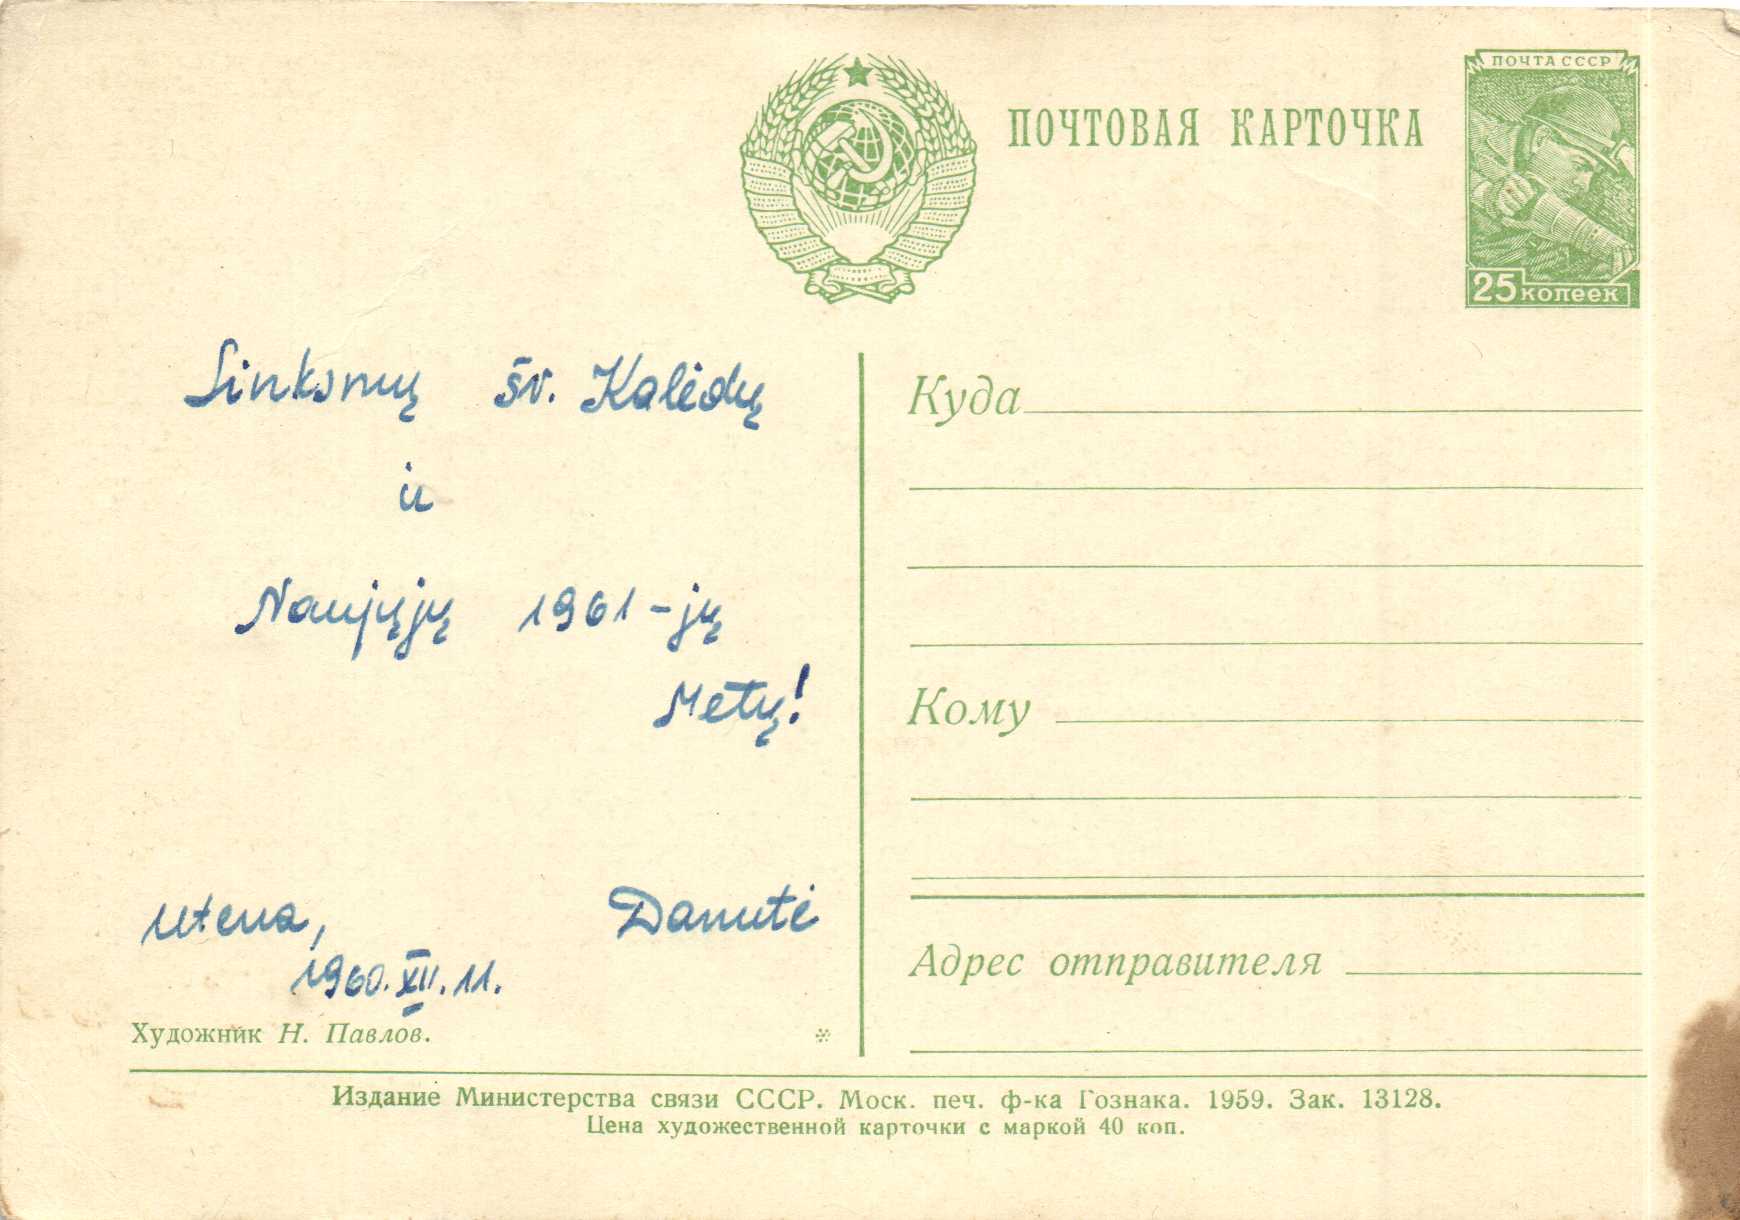 ПОЧТА СССР
ПОЧТОВАЯ КАРТОЧКА
25 копеек
Linksmų šv. Kalėdų
ir
Naujųjų 1961-jų
Metų!
Utena, Danutė
1960.XII.11.
Художник Н. Павлов.
Куда
Кому
Адрес отправителя
Издание Министерства связи СССР. Моск. печ. ф-ка Гознака. 1959. Зак. 13128.
Цена художественной карточки с маркой 40 коп.